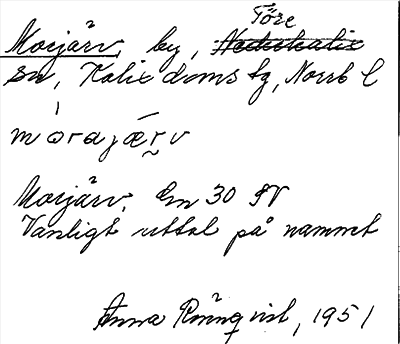 Töre
Morjärv, by, Nederkalix
sn, Kalix doms tg, Norrb l
mórajǣrv
Morjärv. Em 30 SV
Vanligt uttal på namnet
Anna Rönnqvist, 1951